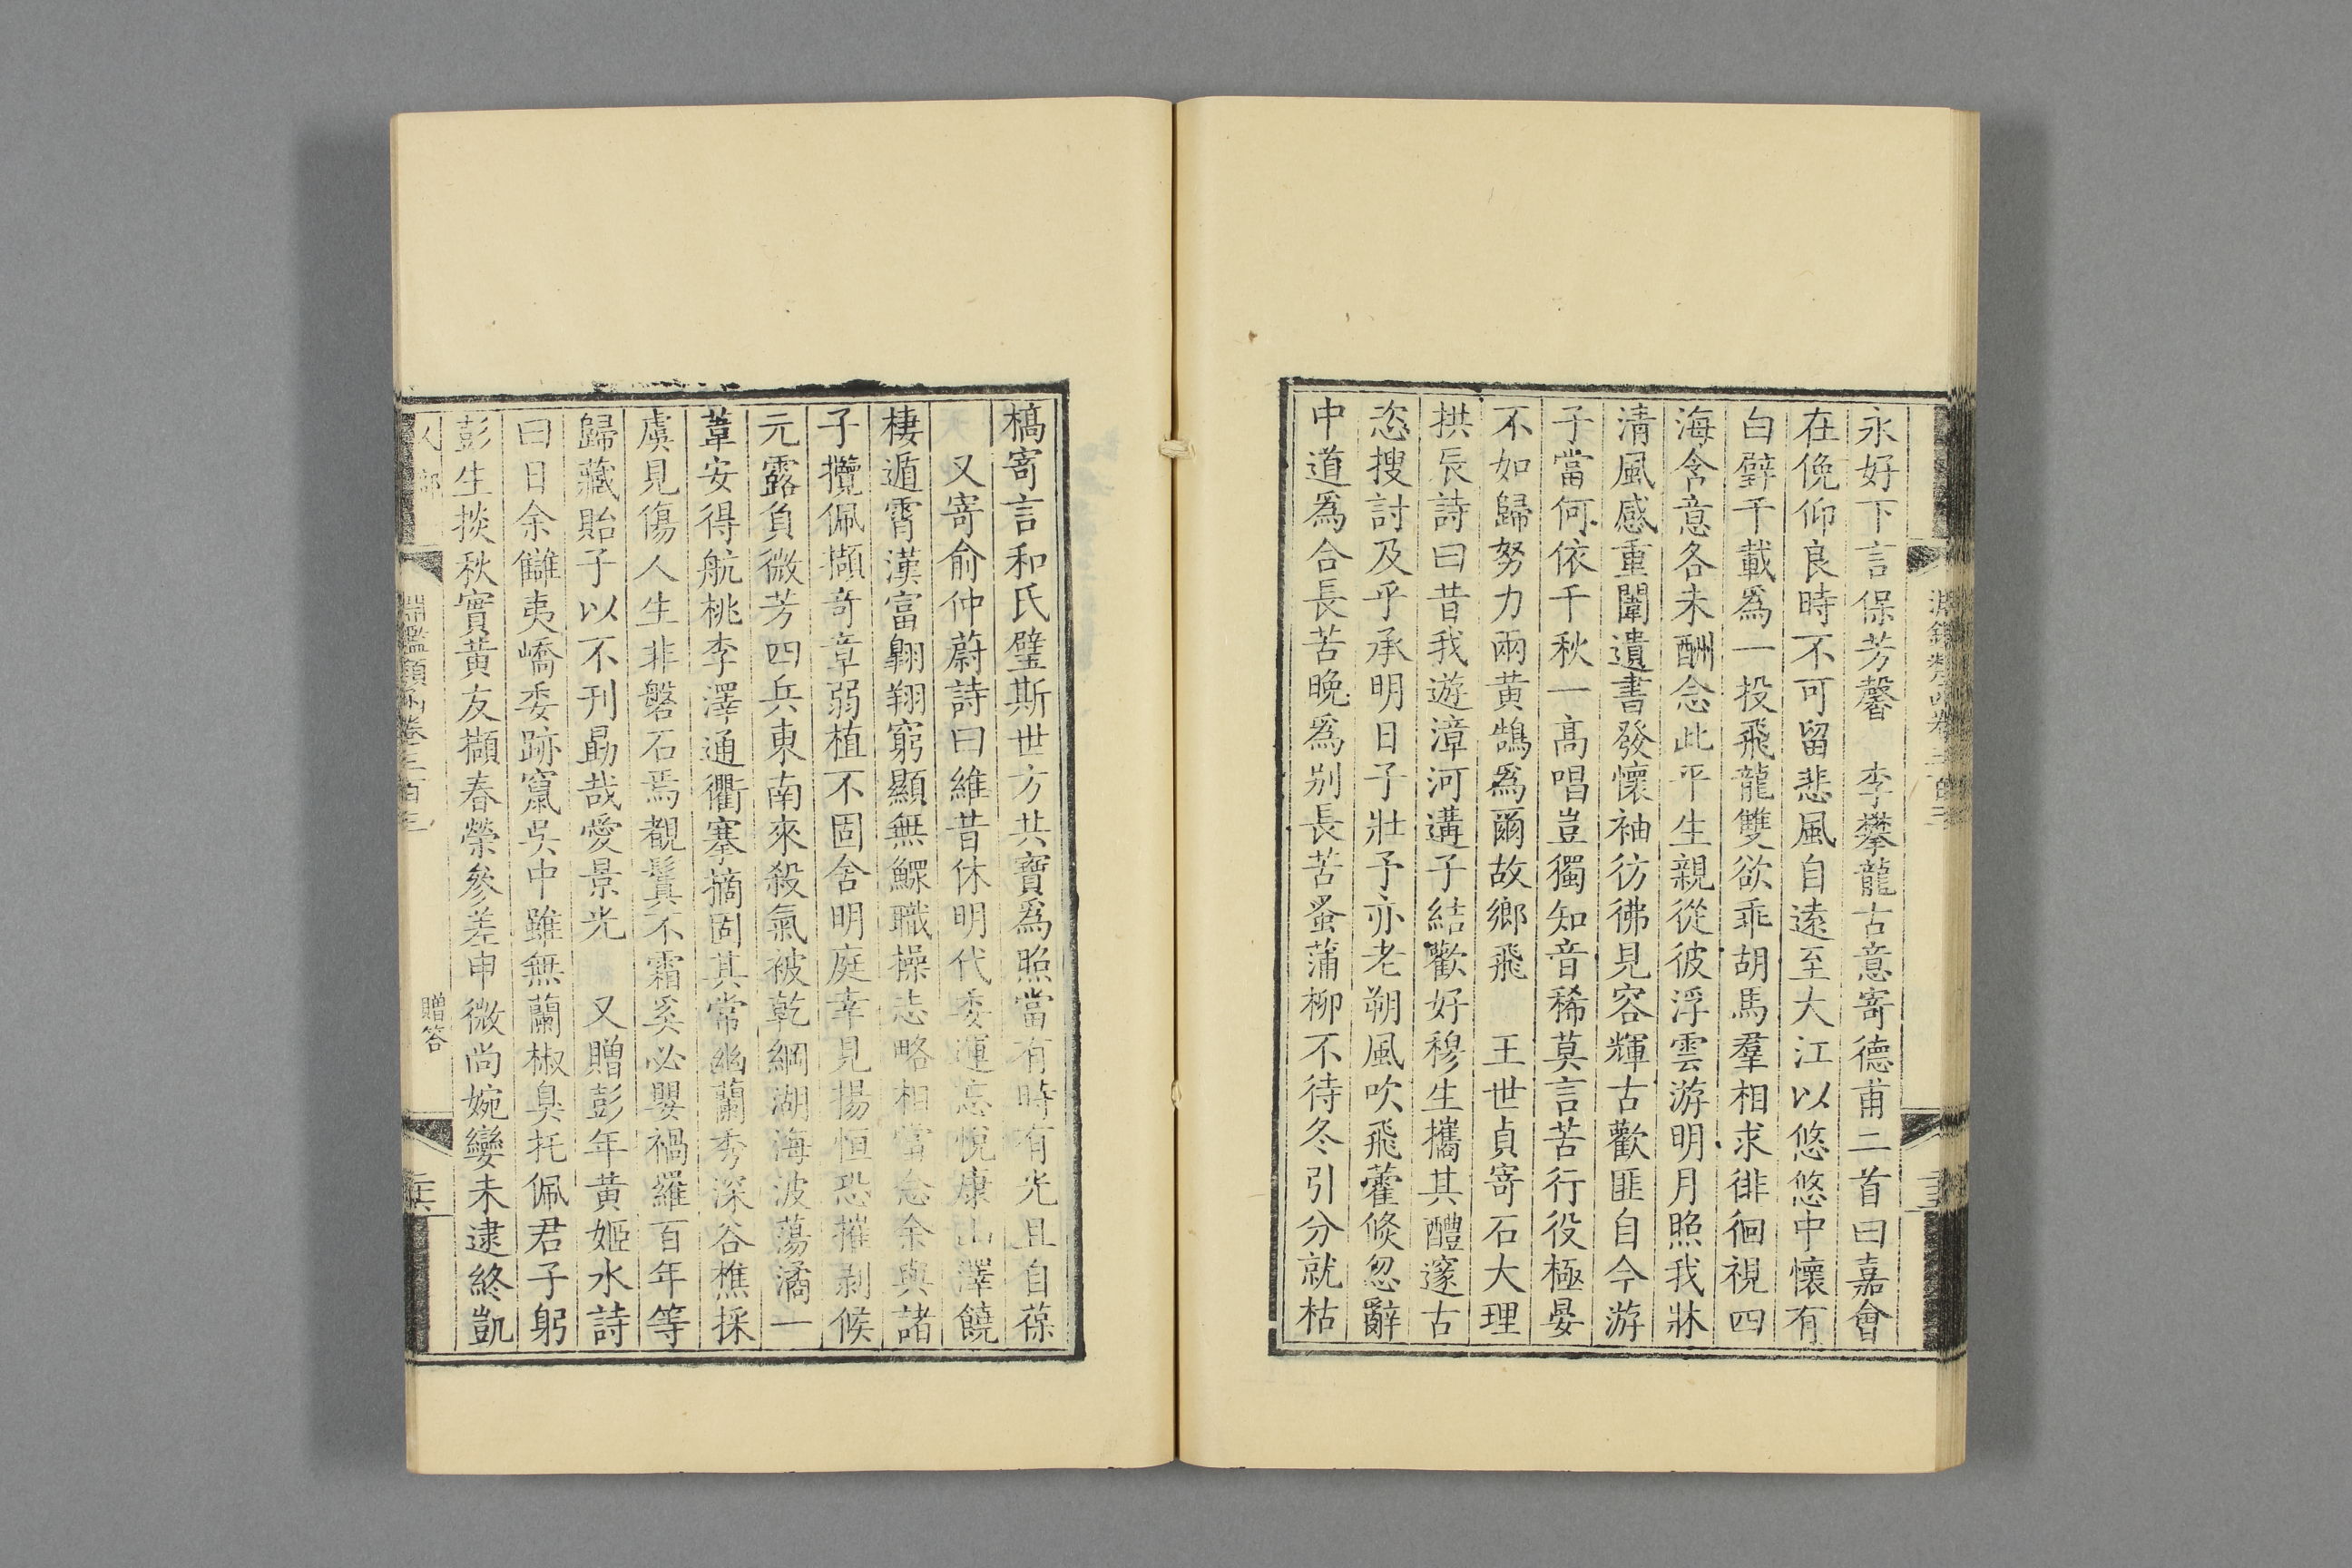 淵鑑類函卷三百三
永好下言保芳馨　李攀龍古意寄德甫二首曰嘉會
在俛仰良時不可留悲風自遠至大江以悠悠中懷有
白璧千載爲一投飛龍雙欲乖胡馬羣相求徘徊視四
海含意各未酬念此平生親從彼浮雲游明月照我牀
清風感重闈遺書發懷袖彷彿見容輝古歡匪自今游
子當何依千秋一高唱豈獨知音稀莫言苦行役極晏
不如歸努力兩黃鵠爲爾故鄉飛　王世貞寄石大理
拱辰詩曰昔我遊漳河遘子結歡好穆生攜其醴邃古
恣搜討及乎承明日子壯予亦老朔風吹飛藿倏忽辭
中道爲合長苦晚爲别長苦蚤蒲柳不待冬引分就枯
槁寄言和氏璧斯世方共寶爲照當有時有光且自葆
又寄俞仲蔚詩曰維昔休明代委運忘悅康山澤饒
棲遁霄漢富翺翔窮顯無鰥職操志略相當念余與諸
子攬佩擷奇章弱植不固舍明庭幸見揚恒恐摧剥候
元露負微芳四兵東南來殺氣被乾綱湖海波蕩潏一
葦安得航桃李澤通衢搴摘固其常幽蘭秀深谷樵採
虞見傷人生非磐石焉覩鬒不霜奚必嬰禍羅百年等
歸藏貽子以不刊勗哉愛景光　又贈彭年黃姬水詩
曰日余讎夷嶠委跡竄吳中雖無蘭椒臭托佩君子躬
彭生掞秋實黃友擷春榮參差申微尚婉孌未逮終凱
人部　淵鑑類函卷三百三　贈答